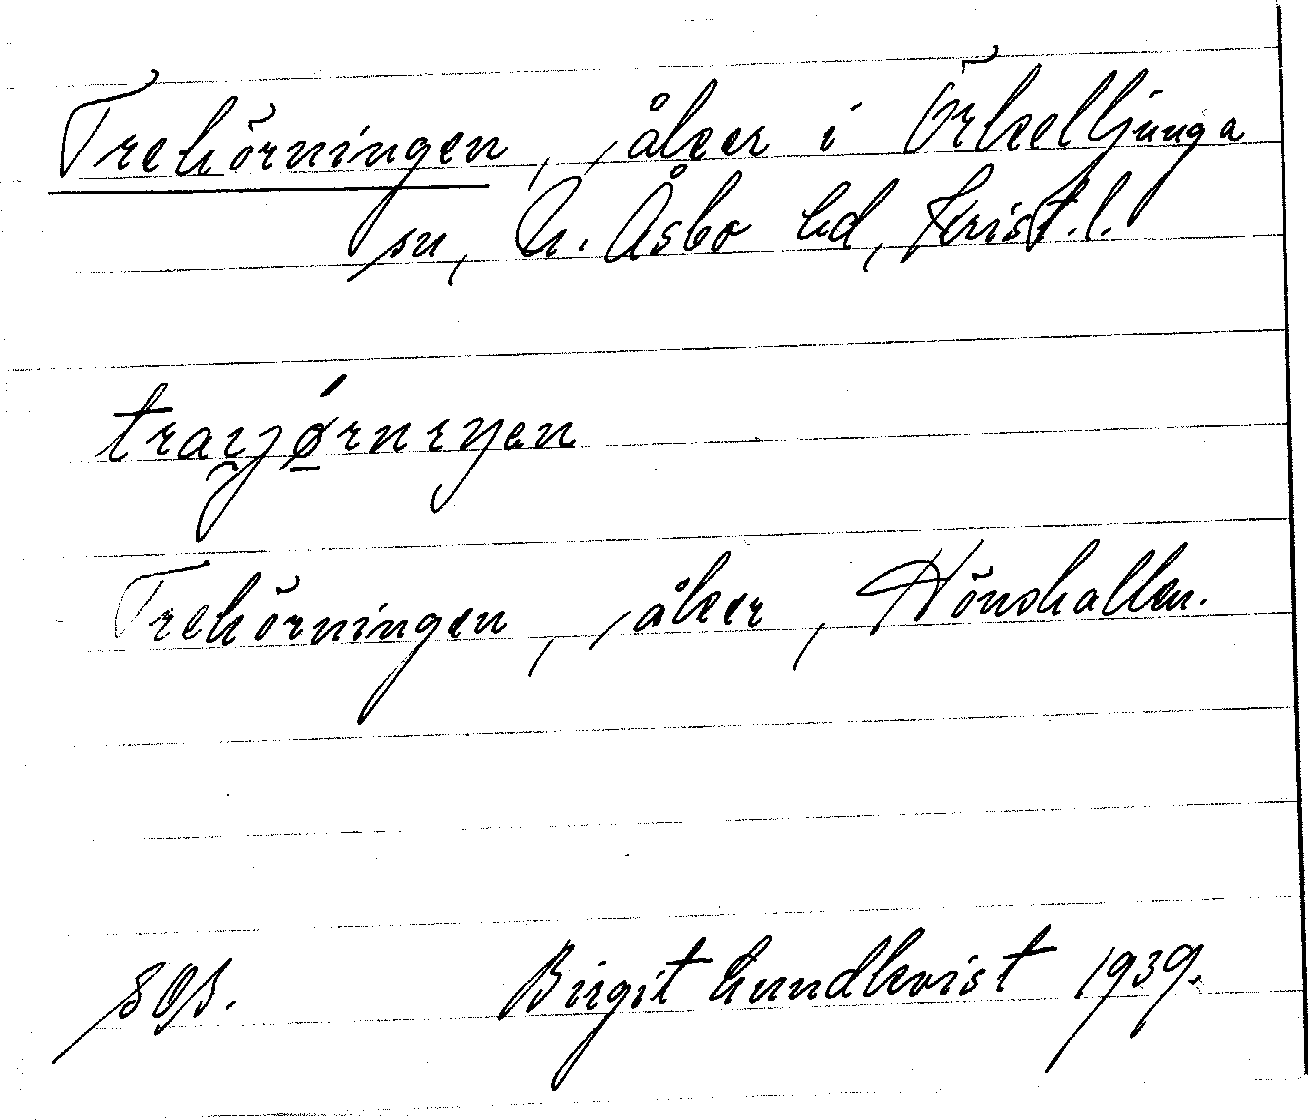 Trehörningen, åker i Örkelljunga
sn, N. Åsbo hd, Krist. l.
Trehörningen, åker, Hönshallen.
Birgit Lundkvist 1939.